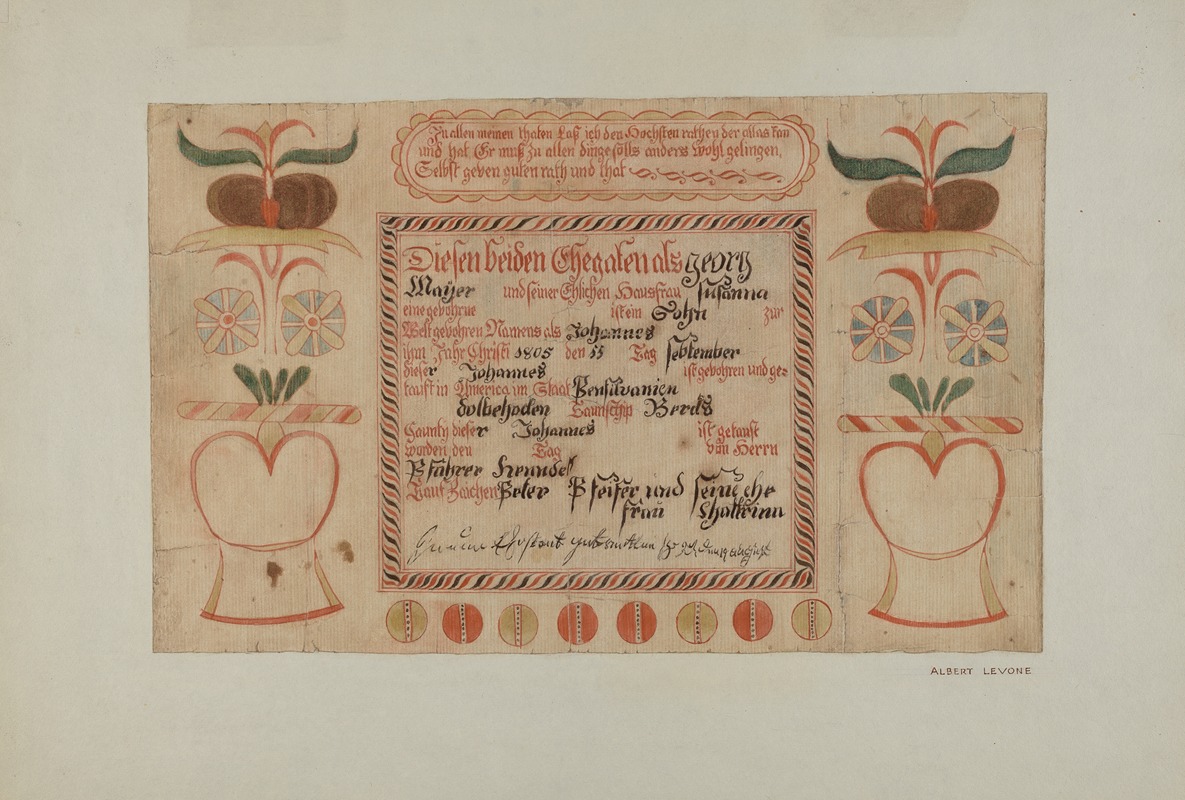 In allen meinen thaten Laß ich den Höchsten rathen der alles kan
und hat Er muß zu allen dinge solls anders wohl gelingen,
Selbst geven guten rath und that
Diesen beiden Ehegaten als georg
Maÿer und seiner Ehlichen Hausfrau susanna
eine gebohrne ist ein Sohn zur
Welt gebohren Namens als Johannes
ihm Jahr Christi 1805 den 11 Tag september
dieser Johannes ist gebohren und ge=
tauft in America im Staat Pensilvanien
dolbehoden Taunschip Berds
Caunty dieser Johannes ist getauft
worden den Tag von Herrn
Pfahrer
Tauf Zaichen Peter Pfeifer und seine ehe
frau Chattrinn
ALBERT LEVONE